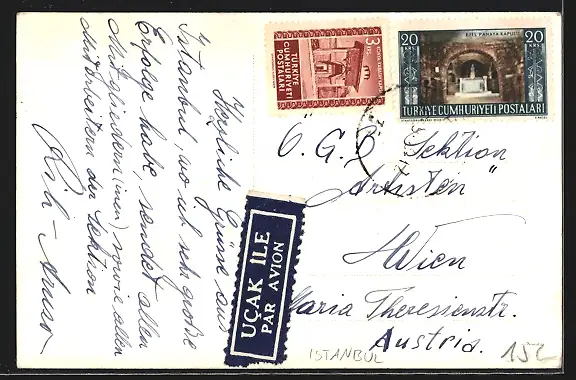 Herzliche Grüsse aus
Istanbul, wo ich sehr große
Erfolge habe, sendet allen
Mitgliedern(innen) sowie allen
Mitarbeitern der Sektion
3
TÜRKİYE
CUMHURİYETİ
POSTALARI
20 KRŞ.
EFES PANAYA KAPULU
20 KRŞ.
TÜRKİYE CUMHURİYETİ POSTALARI
Ö.G.B. Sektion
"Artisten"
Wien
Maria Theresienstr.
Austria.
UÇAK İLE
PAR AVION
ISTANBUL